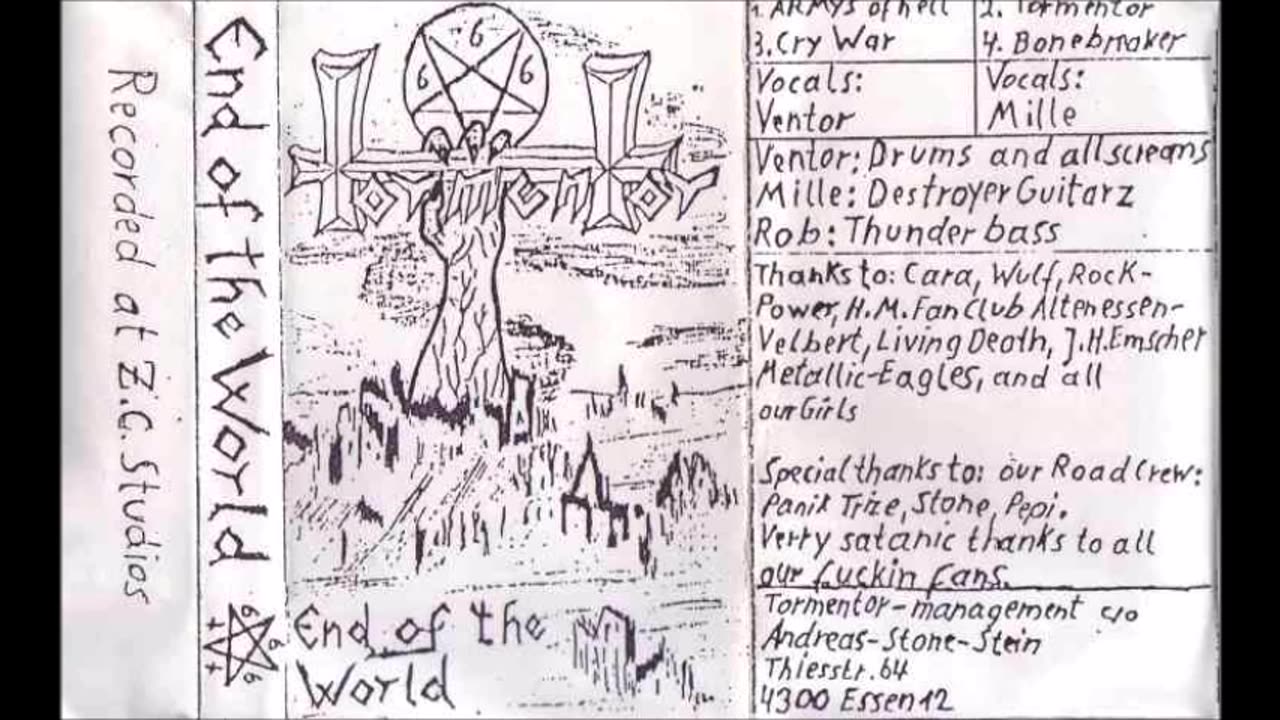 Recorded at Z.C. Studios
End of the World
6 6 6
6
6 6
Tormentor
End of the
World
1. ARMYs of hell
2. Tormentor
3. Cry War
4. Bonebrnaker
Vocals:
Ventor
Vocals:
Mille
Ventor: Drums and all screams
Mille: Destroyer Guitarz
Rob: Thunder bass
Thanks to: Cara, Wulf, Rock-
Power, H.M. Fan Club Altenessen-
Velbert, Living Death, J.H. Emscher
Metallic-Eagles, and all
our Girls
Special thanks to: our Road Crew:
Panik Trize, Stone, Pepi.
Verry satanic thanks to all
our fuckin fans.
Tormentor-management c/o
Andreas-Stone-Stein
Thiesstr. 64
4300 Essen 12